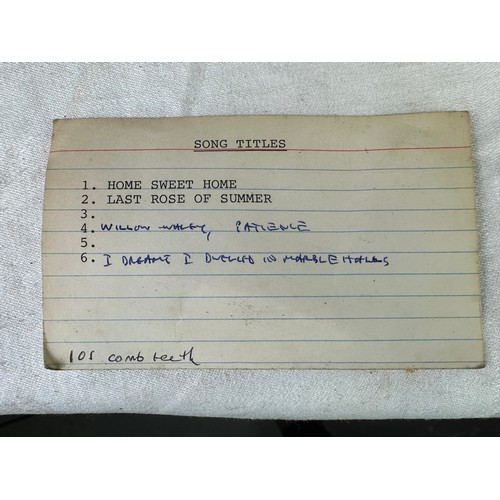 SONG TITLES
1. HOME SWEET HOME
2. LAST ROSE OF SUMMER
3.
4. WILLOW WALEY, PATIENCE
5.
6. I DREAMT I DWELLED IN MARBLE HALLS
101 comb teeth